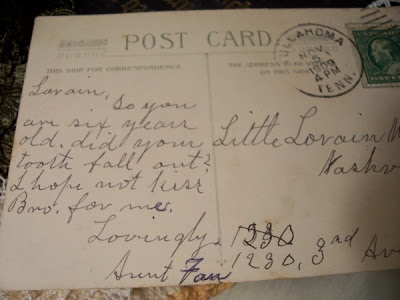 POST CARD
THIS SIDE FOR CORRESPONDENCE.
THE ADDRESS TO BE
ON THIS SIDE
TULLAHOMA
NOV
4 PM
1909
TENN.
Lorain,
So you
are six years
old. did your
tooth fall out?
I hope not kiss
Bro. for me.
Lovingly.
Aunt Fan
Little Lorain
Nashv
1230
1230, 3rd Av